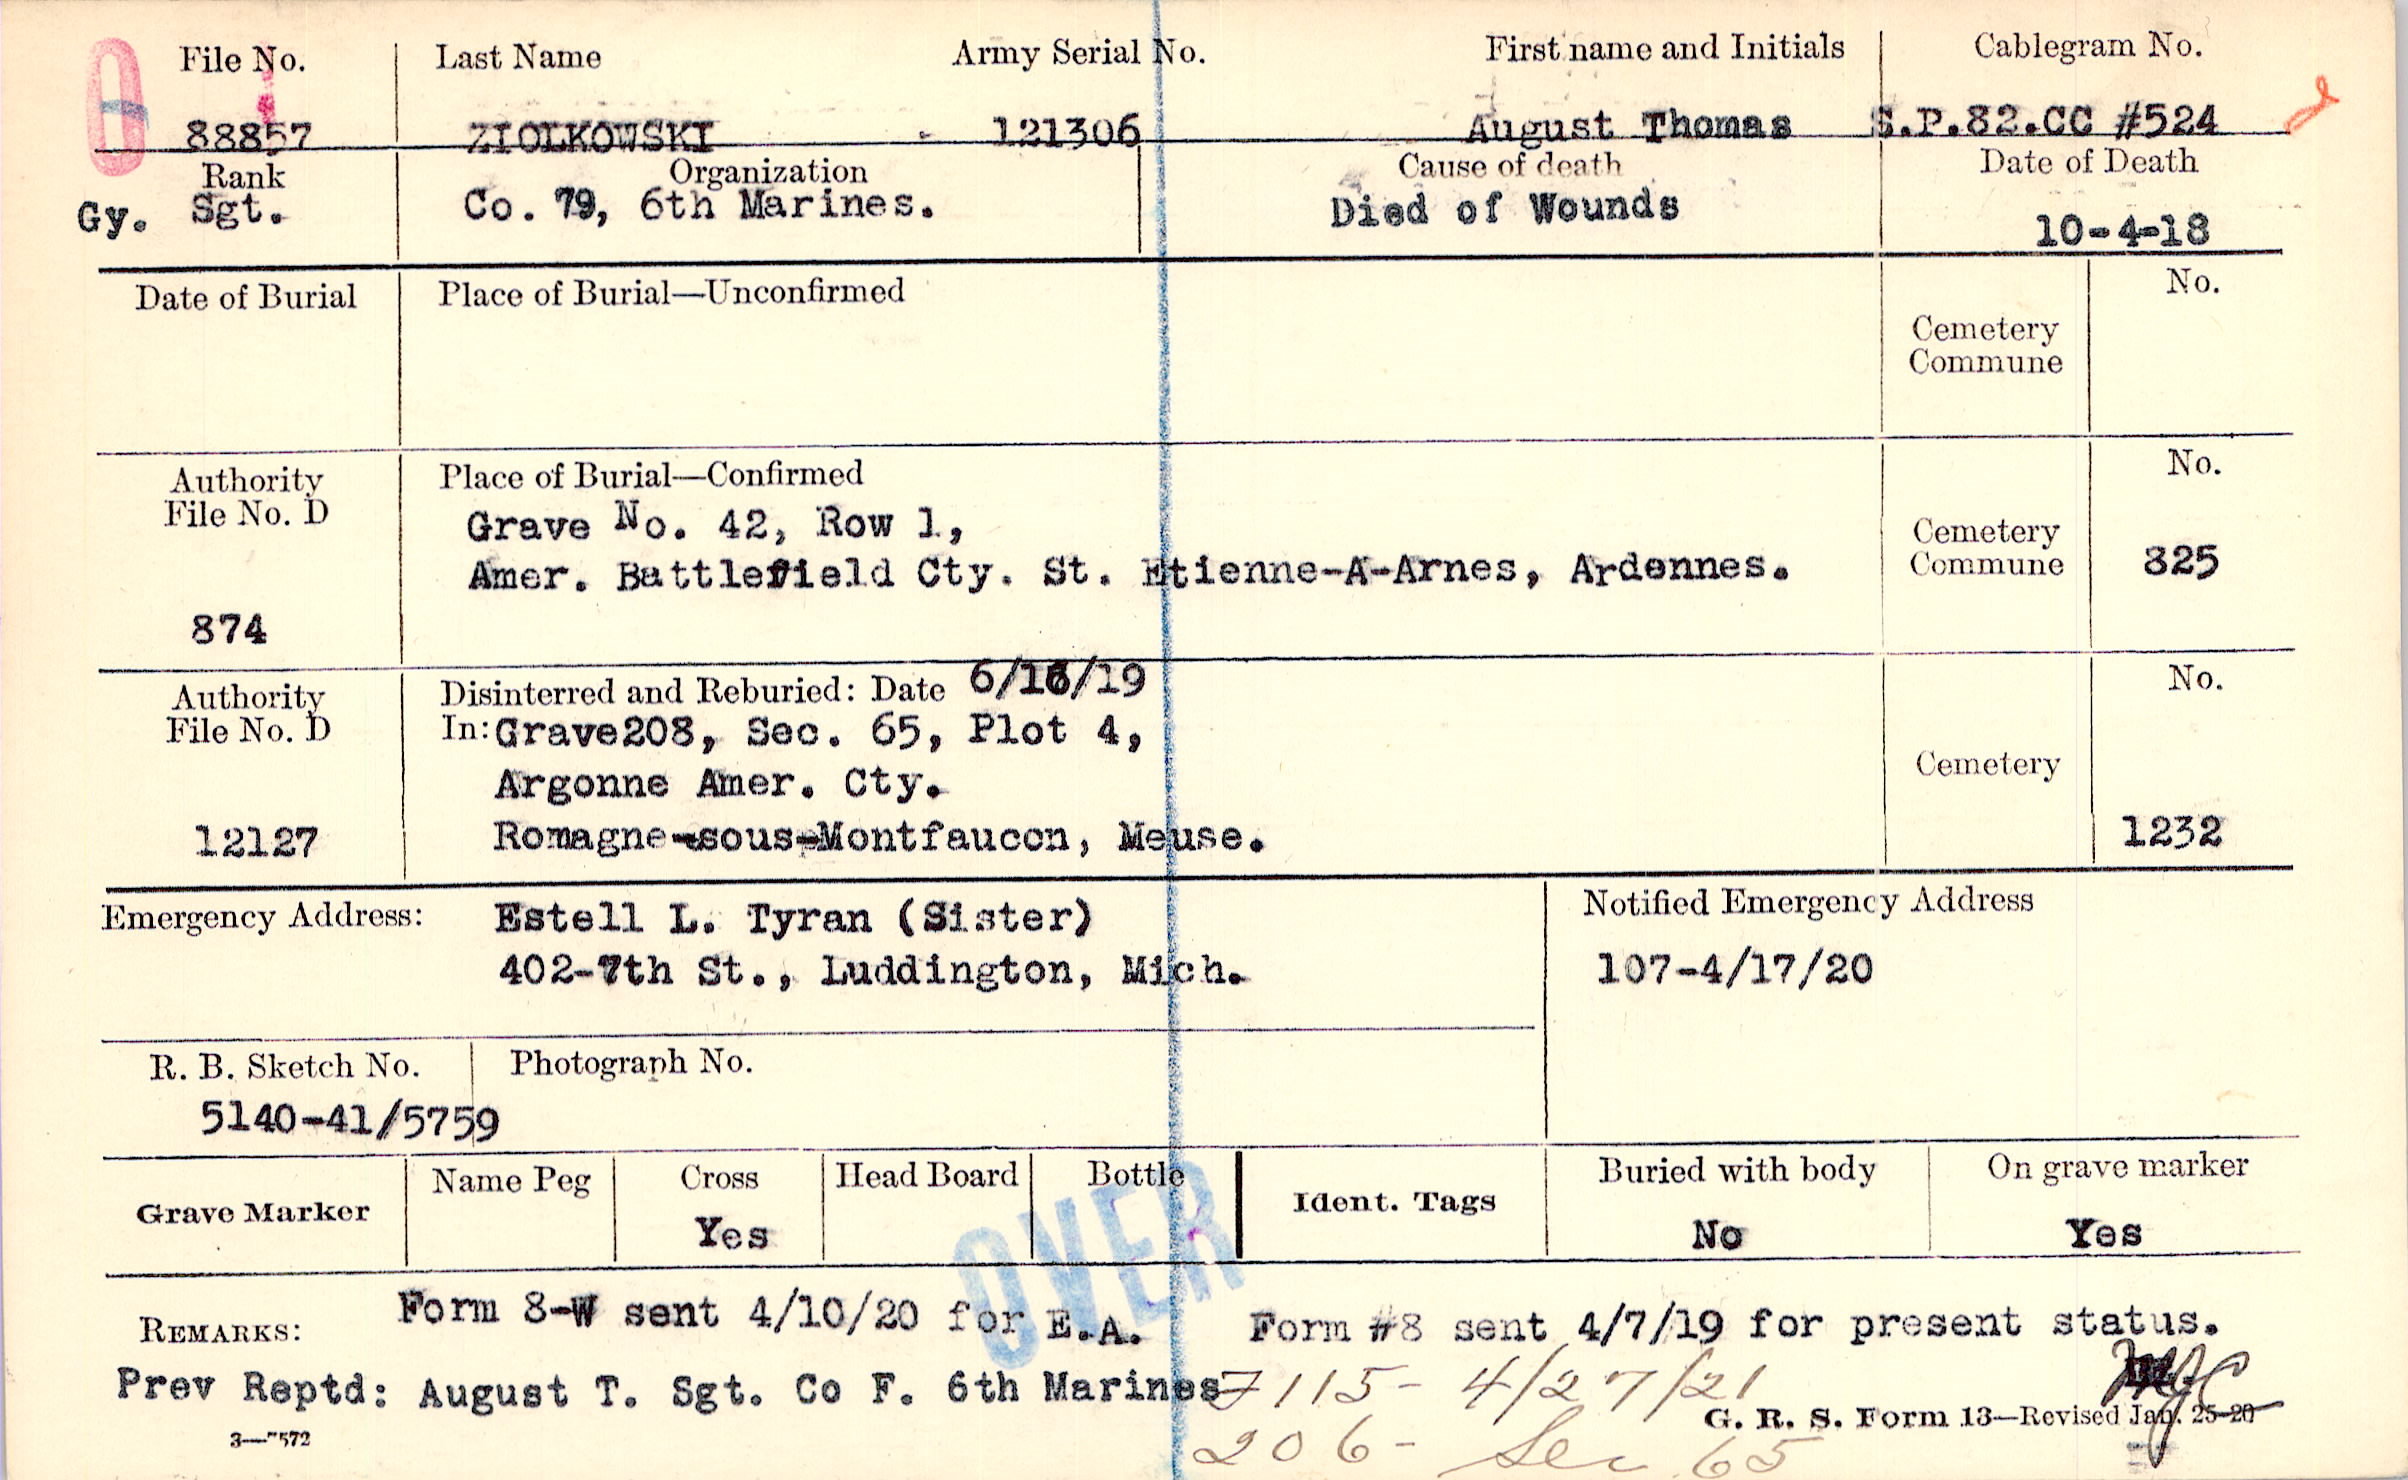 File No. Last Name Army Serial No. First name and Initials Cablegram No.
88857 ZIOLKOWSKI - 121306 August Thomas S.P.82.CC #524
Rank Organization Cause of death Date of Death
Gy. Sgt. Co. 79, 6th Marines. Died of Wounds 10-4-18
Date of Burial Place of Burial—Unconfirmed No.
Cemetery
Commune
Authority Place of Burial—Confirmed No.
File No. D Grave No. 42, Row 1,
Cemetery
Amer. Battlefield Cty. St. Etienne-A-Arnes, Ardennes. Commune 825
874
Authority Disinterred and Reburied: Date 6/16/19 No.
File No. D In: Grave208, Sec. 65, Plot 4,
Argonne Amer. Cty. Cemetery
12127 Romagne-sous-Montfaucon, Meuse. 1232
Emergency Address: Estell L. Tyran (Sister) Notified Emergency Address
402-7th St., Luddington, Mich. 107-4/17/20
R. B. Sketch No. Photograph No.
5140-41/5759
Grave Marker Name Peg Cross Head Board Bottle Ident. Tags Buried with body On grave marker
Yes No Yes
OVER
REMARKS: Form 8-W sent 4/10/20 for E.A. Form #8 sent 4/7/19 for present status.
Prev Reptd: August T. Sgt. Co F. 6th Marines 7115- 4/27/21
G. R. S. Form 13—Revised Jan. 25-20
3—7572 206- Sec 65